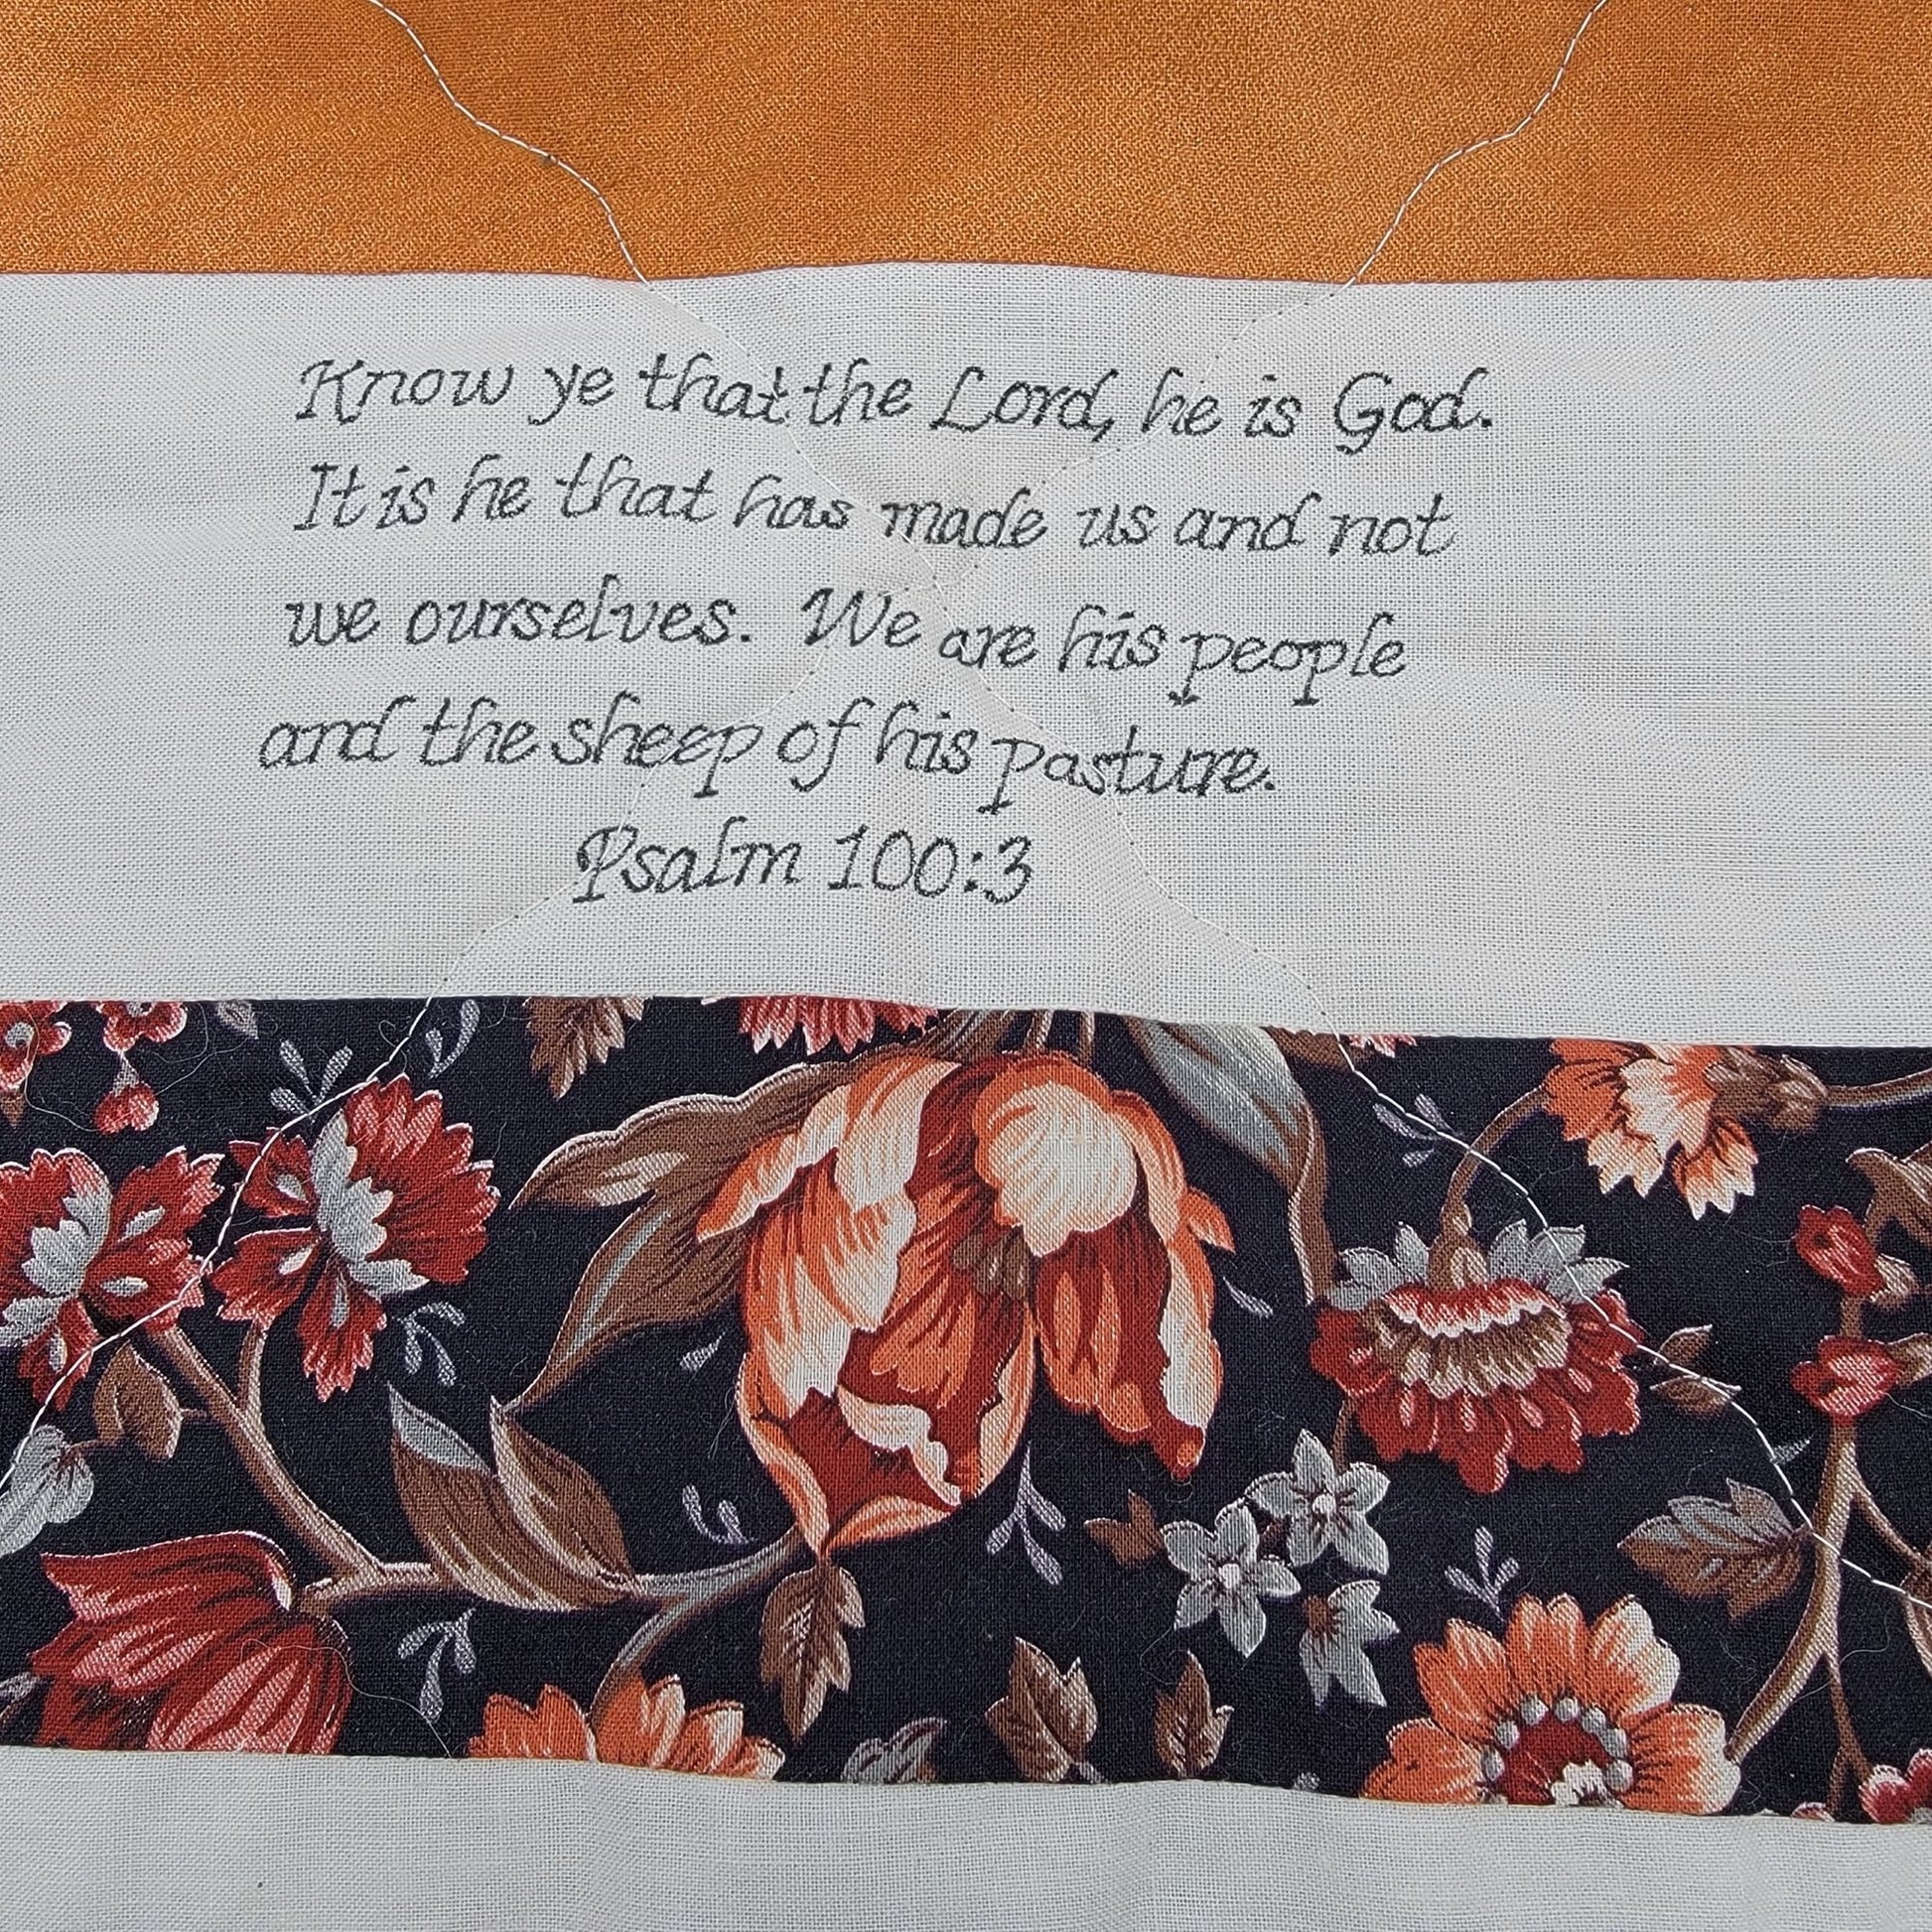 Know ye that the Lord, he is God.
It is he that has made us and not
we ourselves. We are his people
and the sheep of his pasture.
Psalm 100:3